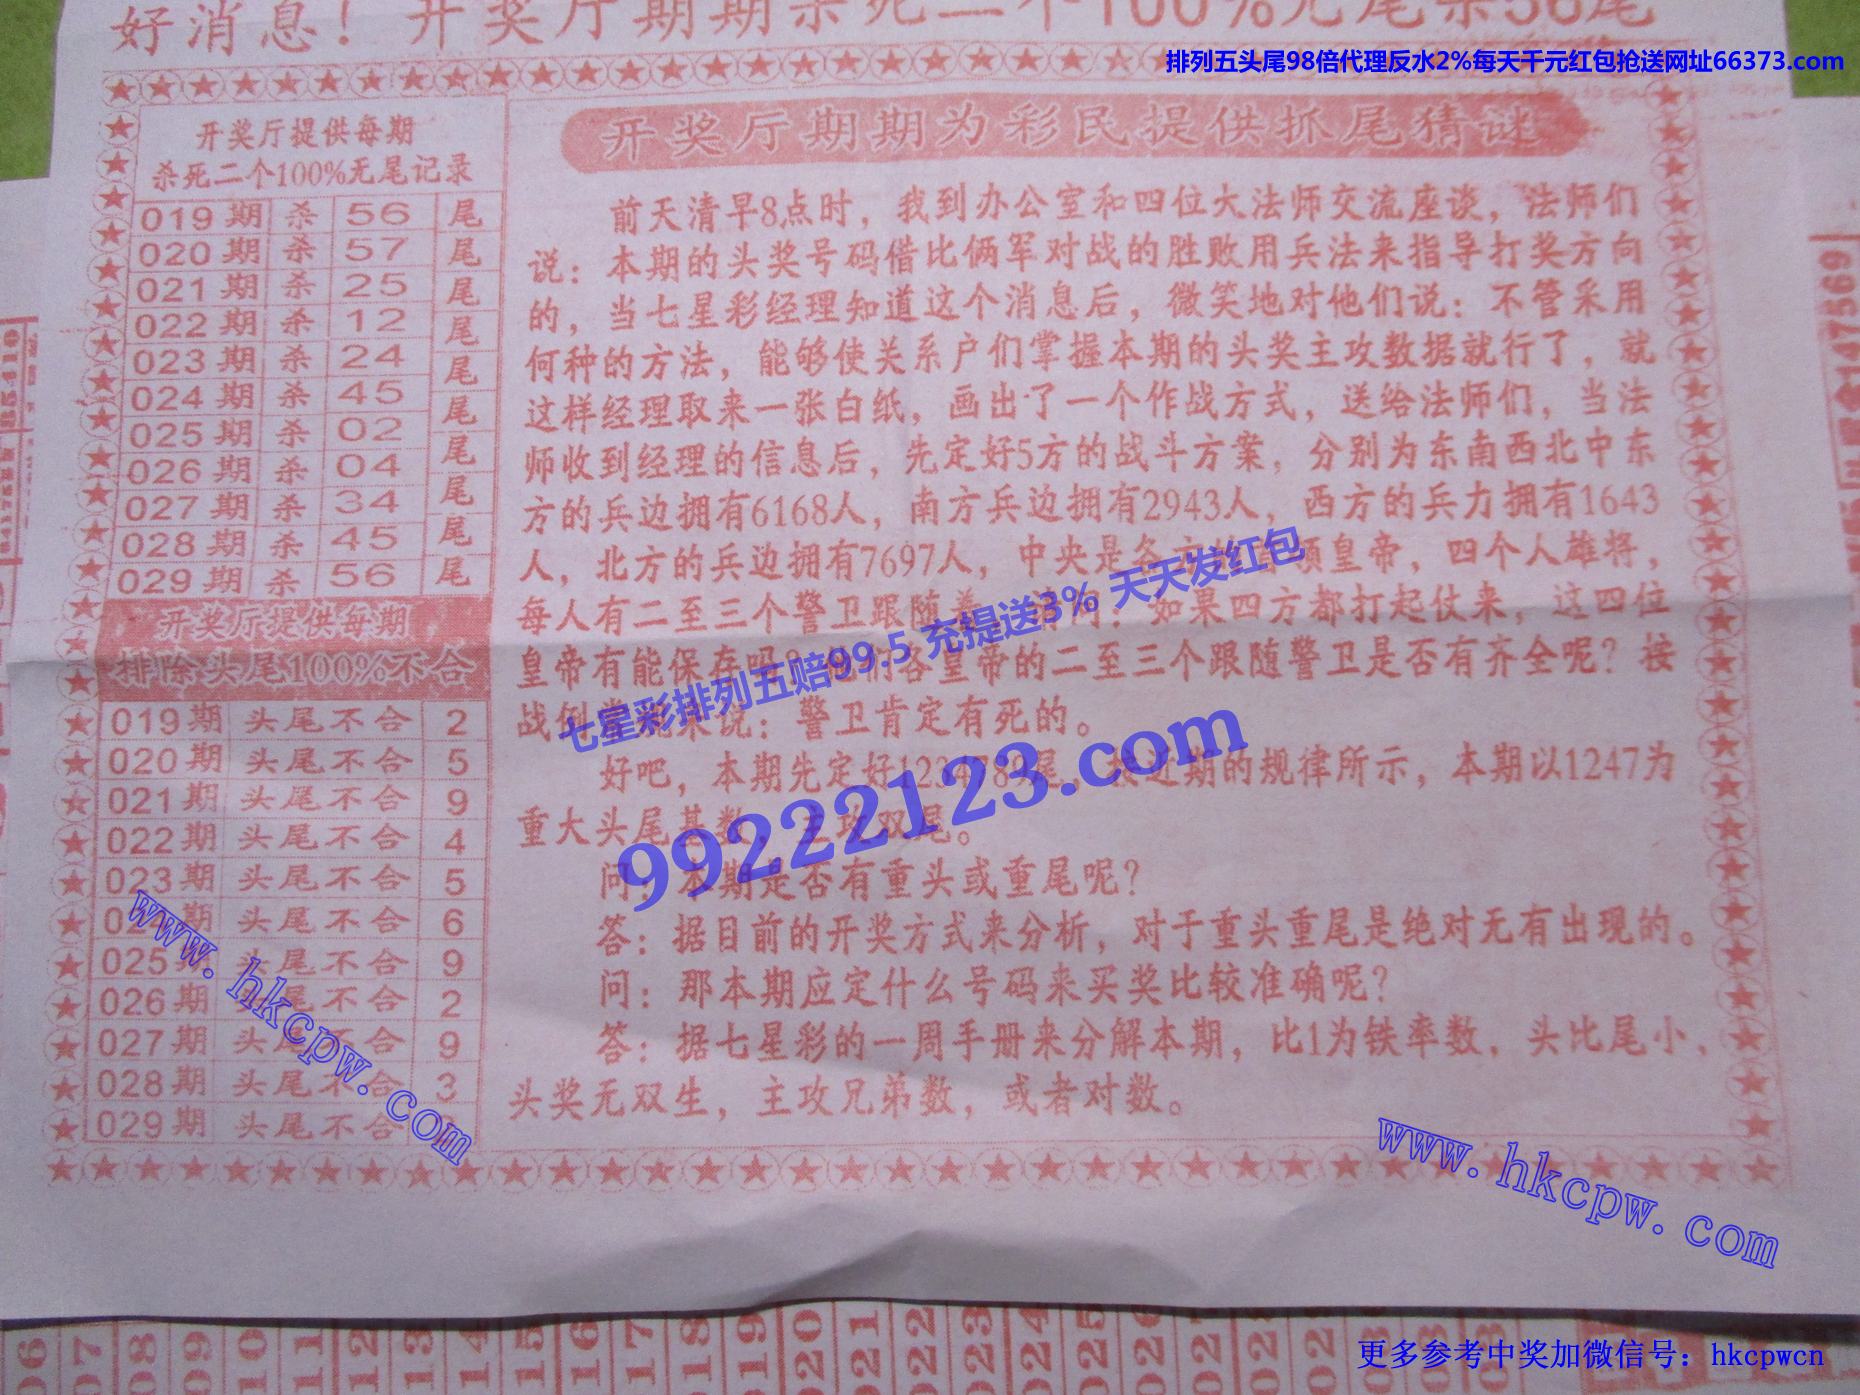 好消息！开奖厅期期杀死二个100%无尾杀56尾
排列五头尾98倍代理反水2%每天千元红包抢送网址66373.com
开奖厅提供每期
杀死二个100%无尾记录
019期 杀 56 尾
020期 杀 57 尾
021期 杀 25 尾
022期 杀 12 尾
023期 杀 24 尾
024期 杀 45 尾
025期 杀 02 尾
026期 杀 04 尾
027期 杀 34 尾
028期 杀 45 尾
029期 杀 56 尾
开奖厅提供每期
排除头尾100%不合
019期 头尾不合 2
020期 头尾不合 5
021期 头尾不合 9
022期 头尾不合 4
023期 头尾不合 5
024期 头尾不合 6
025期 头尾不合 9
026期 头尾不合 2
027期 头尾不合 9
028期 头尾不合 3
029期 头尾不合
开奖厅期期为彩民提供抓尾猜谜
前天清早8点时，我到办公室和四位大法师交流座谈，法师们
说：本期的头奖号码借比俩军对战的胜败用兵法来指导打奖方向
的，当七星彩经理知道这个消息后，微笑地对他们说：不管采用
何种的方法，能够使关系户们掌握本期的头奖主攻数据就行了，就
这样经理取来一张白纸，画出了一个作战方式，送给法师们，当法
师收到经理的信息后，先定好5方的战斗方案，分别为东南西北中东
方的兵边拥有6168人，南方兵边拥有2943人，西方的兵力拥有1643
人，北方的兵边拥有7697人，中央是各方的首领皇帝，四个人雄将，
每人有二至三个警卫跟随着，请问：如果四方都打起仗来，这四位
皇帝有能保存吗？他们各皇帝的二至三个跟随警卫是否有齐全呢？按
战例常规来说：警卫肯定有死的。
好吧，本期先定好1234789尾，按近期的规律所示，本期以1247为
重大头尾基数，主攻双尾。
问：本期是否有重头或重尾呢？
答：据目前的开奖方式来分析，对于重头重尾是绝对无有出现的。
问：那本期应定什么号码来买奖比较准确呢？
答：据七星彩的一周手册来分解本期，比1为铁率数，头比尾小，
头奖无双生，主攻兄弟数，或者对数。
七星彩排列五赔99.5 充提送3% 天天发红包
99222123.com
www.hkcpw.com
www.hkcpw.com
147569
06 07 08 09 010 011 012 013 014 015 016 017 018 019 020 021 022 023 024 025 026 027 028
更多参考中奖加微信号：hkcpwcn